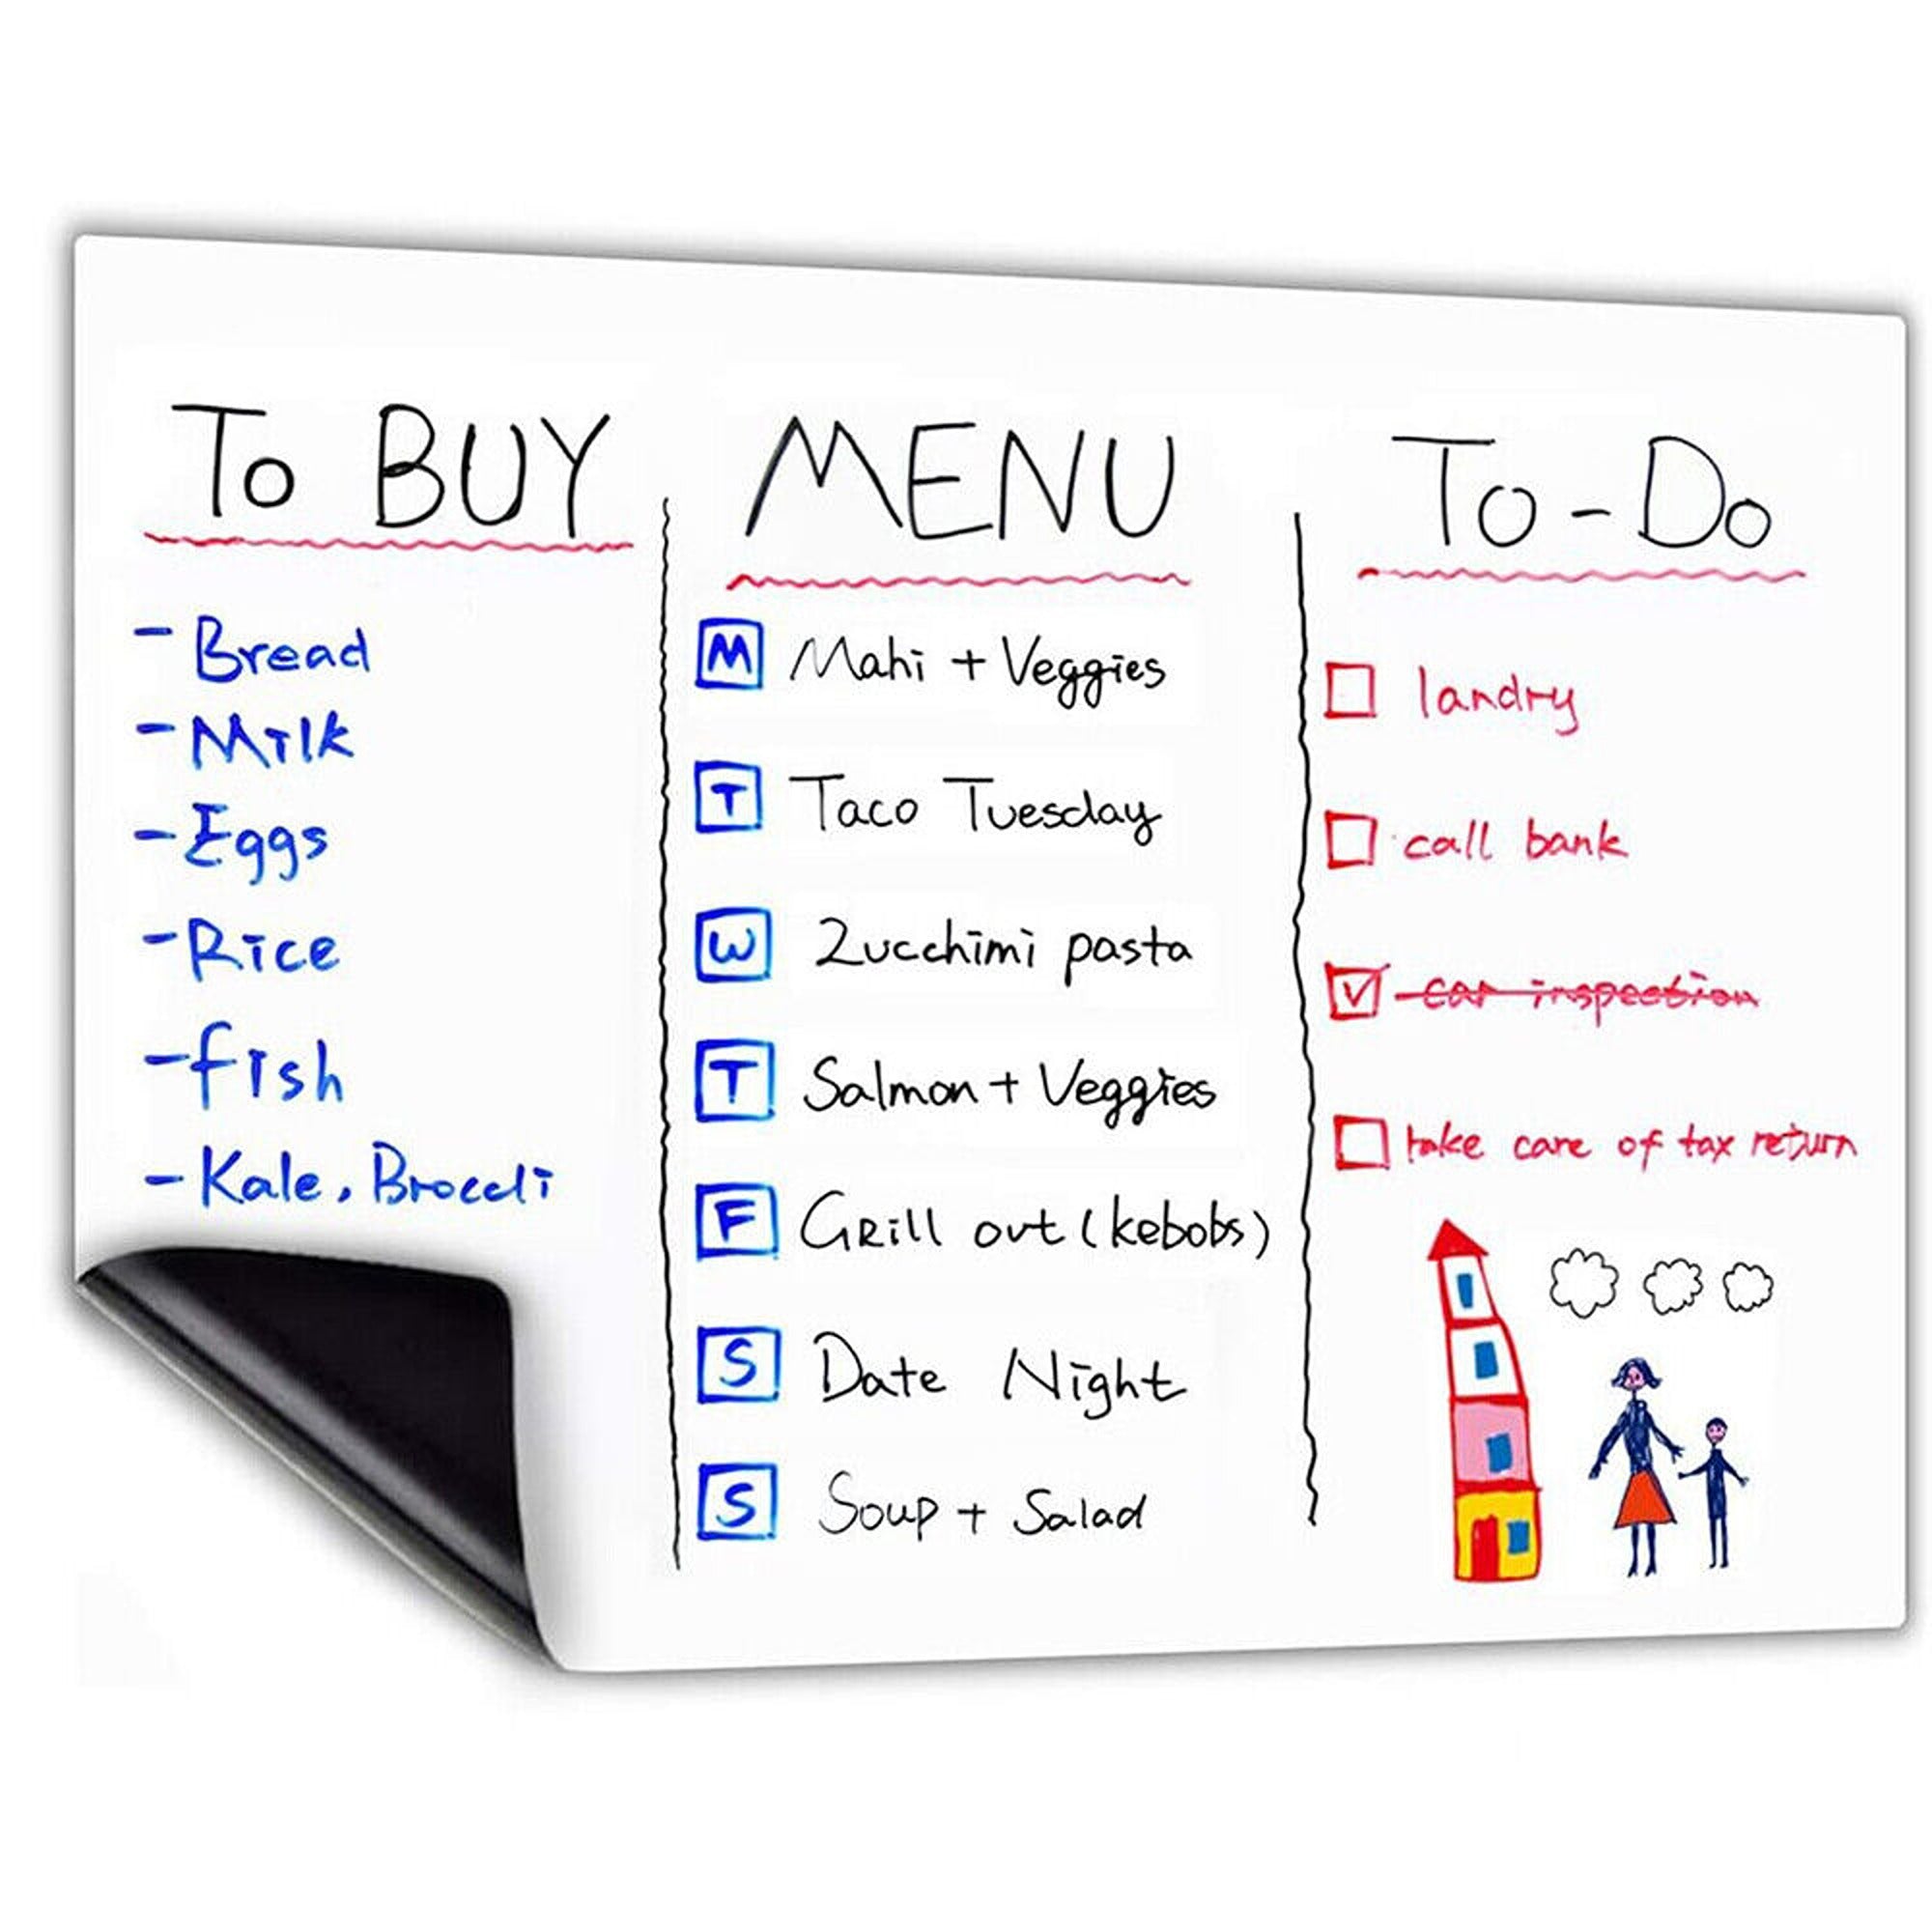 To BUY
- Bread
- Milk
- Eggs
- Rice
- fish
- Kale, Broccli
MENU
M Mahi + Veggies
T Taco Tuesday
W Zucchimi pasta
T Salmon + Veggies
F GRill out (kebobs)
S Date Night
S Soup + Salad
To-Do
landry
call bank
car inspection
take care of tax return